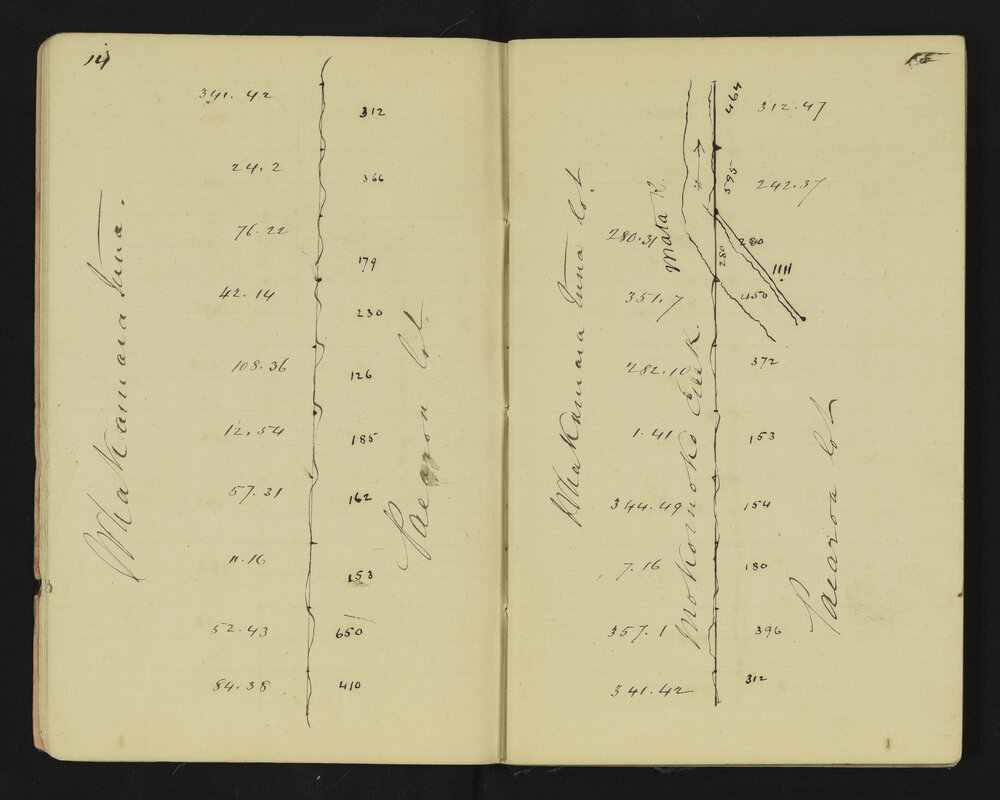 14
341.42
312
24.2
366
76.22
179
42.14
230
108.36
126
12.54
185
57.31
162
11.16
153
52.43
650
84.38
410
Whakamara Tuna.
Paeroa lot
464
312.47
595
242.37
280.31
Mata R.
280
280
1111
351.7
450
282.10
372
1.41
153
344.49
154
7.16
180
357.1
396
341.42
312
Whakamara Tuna lot
Mokomoko Creek
Paeroa lot